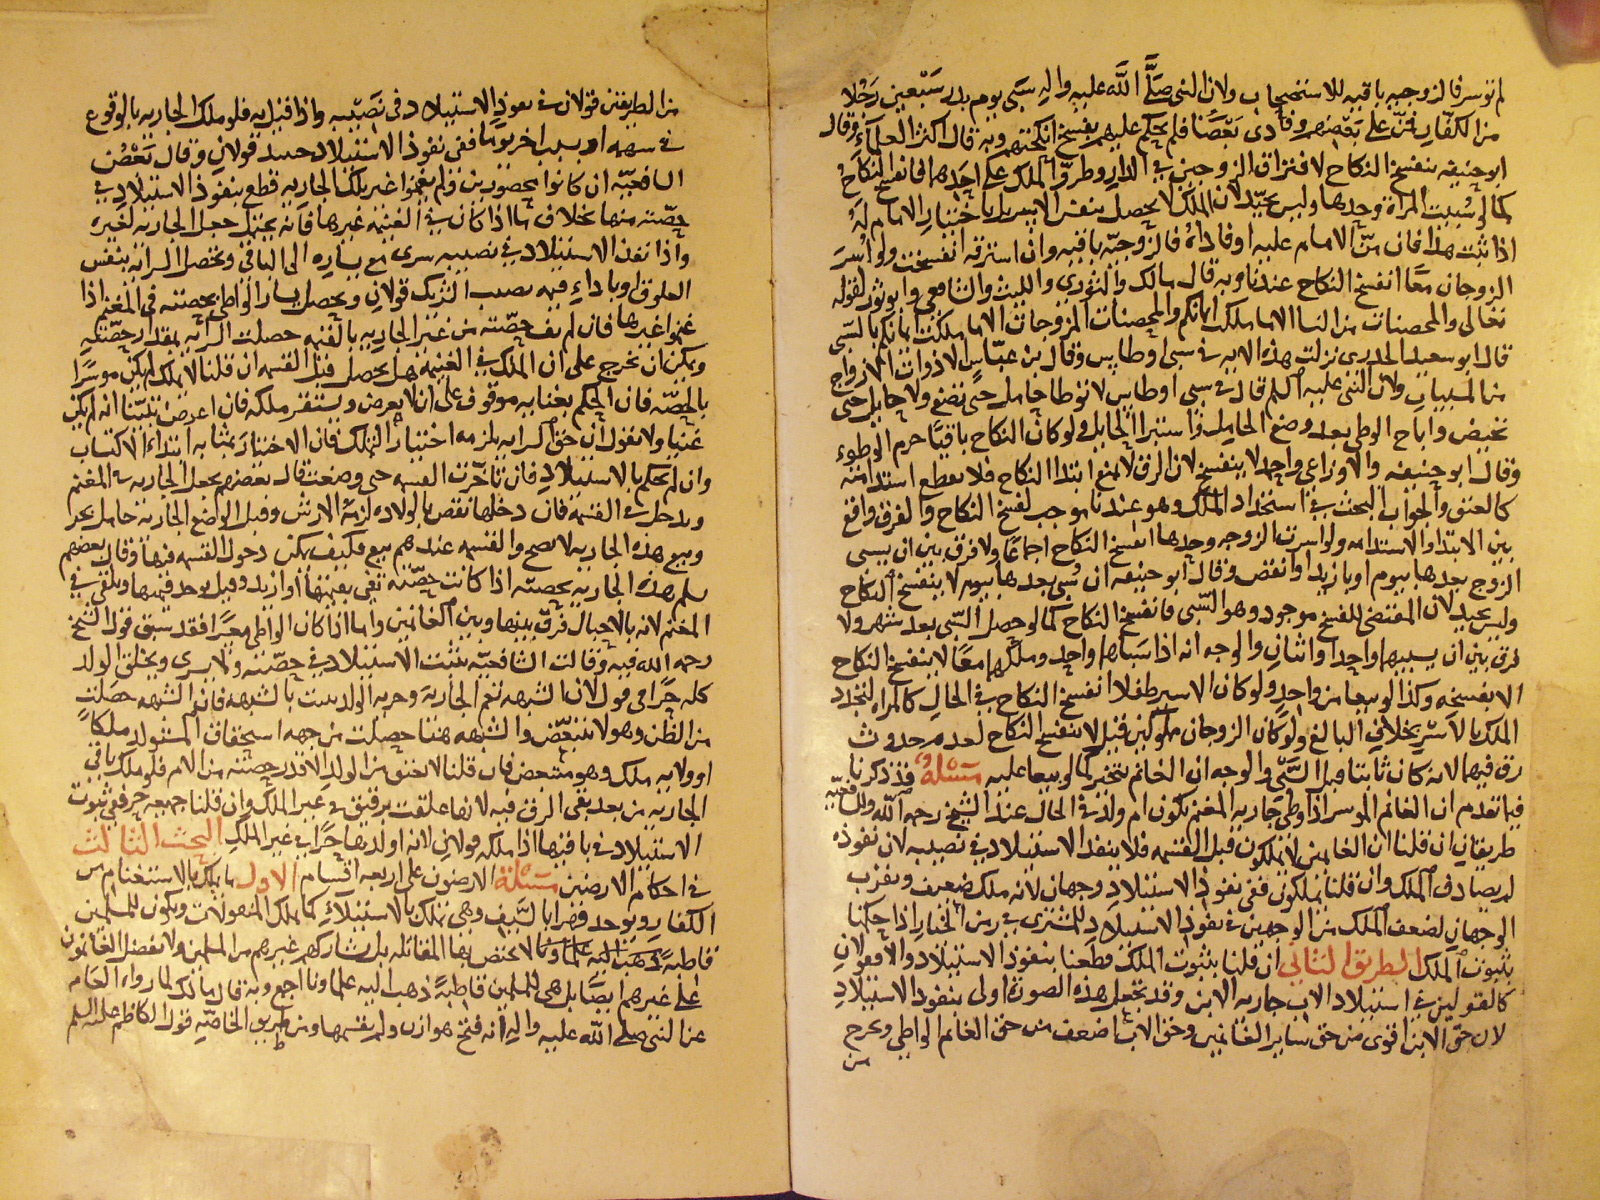 لم توسر فالزوجيه باقيه للاستصحاب ولان النبى صَلَّى اللَّه عليه واله سبى يوم بدر سَبْعين رَجُلا
من الكفّار فمنّ على بَعْضهم وفادى بَعْضًا فلم يحكم عليهم بفسخ انكحتهم وبه قال اكثر العلمآء وقال
ابو حنيفه ينفسخ النكاح لافتراق الزوجين في الدار وطروّ الملك على احدهما فانفسخ النكاح
كما لو سُبيت المرأة وحدها وليس بجيّد لان الملك لا يحصل بنفس الاسر بل باختيار الامام له
اذا ثبت هذا فان منّ الامام عليه او فاداهُ فالزوجيّه باقيه وان استرقه انفسخت ولو اُسرَ
الزوجان معًا انفسخ النكاح عندنا وبه قال مالك والثورى والليث والشافعى وابو ثور لقوله
تعالى والمحصنات من النسا الا ما ملكت ايمانكم والمحصنات المزوجات الا ما ملكت ايمانكم بالسّبى
قال ابو سعيد الخدرى نزلت هذه الايه في سبى اوطاس وقال بن عبّاس الا ذوات الازواج
من المسبيات ولان النبى عليه السلم قال في سبى اوطاس لا توطا حامل حتى تضع ولا حايل حتى
تحيض واباح الوطى بعد وضع الحامل واستبرا الحايل ولو كان النكاح باقيًا حرم الوطوء
وقال ابو حنيفه والاوزاعى واحمد لا ينفسخ لان الرق لا يمنع ابتدا النكاح فلا يقطع استدامته
كالعتق والجواب البحث في استحداد الملك وهو عندنا موجب لفسخ النكاح والفرق واقع
بين الابتدا والاستدامه ولو اسرت الزوجه وحدها انفسخ النكاح اجماعًا ولا فرق بين ان يسبى
الزوج بعدها بيوم او بازيد او انقص وقال ابو حنيفه ان سُبى بعدها بيوم لا ينفسخ النكاح
وليس بجيد لان المقتضى للفسخ موجود وهو السّبى فانفسخ النكاح كما لو حصل السّبى بعد شهر ولا
فرق بين ان يسبيهما واحد او اثنان والوجه انه اذا سباهما واحد وملكهما معًا لا ينفسخ النكاح
الا بفسخه وكذا لو بيعا من واحد ولو كان الاسير طفلا انفسخ النكاح في الحال كالمراه لتجدد
الملك بالاسر بخلاف البالغ ولو كان الزوجان مملوكين قيل لا ينفسخ النكاح لعدم حدوث
رق فيهما لانه كان ثابتا قبل السَّبْى والوجه ان الغانم يتخير كما لو بيعا عليه مَسْئلةٌ قد ذكرنا
فيما تقدم ان الغانم الموسر اذا وطى جاريه المغنم تكون ام ولد في الحال عند الشيخ رحمه الله وللشافعيّه
طريقان ان قلنا ان الغانمين لا يملكون قبل القسمه فلا ينفذ الاستيلاد في نصيبه لان نفوذه
لم يصادف الملك وان قلنا يملكون ففى نفوذ الاستيلاد وجهان لانه ملك ضعيف ويقرب
الوجهان لضعف الملك من الوجهين في نفوذ الاستيلاد للمشترى في زمن الخيار اذا حكمنا
بثبوت الملك الطريق الثاني ان قلنا بثبوت الملك قطعنا بنفوذ الاستيلاد والا فقولان
كالقولين في استيلاد الاب جاريه الابن وقد تجعل هذه الصورة اولى بنفوذ الاستيلاد
لان حق الابن اقوى من حق ساير الغانمين وحق الاب اضعف من حق الغانم الواطى وخرج
من
من الطريقين قولان في نفوذ الاستيلاد في نَصيْبه واذا قيل به فلو ملك الجاريه بالوقوع
في سهمه او بسبب اخر يوما ففى نفوذ الاستيلاد حينئذ قولان وقال بَعْضُ
الشافعيّه ان كانوا محصورين ولم يغنموا غير تلك الجاريه قطع بنفوذ الاستيلاد في
حصّته منها بخلاف ما اذا كان في الغنيمه غيرها فانه يحتمل جعل الجاريه لغيره
واذا نفذ الاستيلاد في نصيبه سرى مع يساره الى الباقى وتحصل السرايه بنفس
العلوق او باداء قيمه نصيب الشريك قولان ويحصل يسار الواطى بحصته في المغنم اذا
غنموا غيرها فان لم تف حصّته من غير الجاريه بالقيمه حصلت السرايه بمقدار حصّته
ويمكن ان يخرج على ان الملك في الغنيمه هل يحصل قبل القسمه ان قلنا لا ملك لم يكن موسرًا
بالحصّه فان الحكم بغنايه موقوف على ان لا يعرض ويستقر ملكه فان اعرض تبيّنا انه لم يكن
غنيا ولا نقول ان حق السرايه يلزمه اختيار التملك فان الاختيار بمثابه ابتداء الاكتساب
وان لم يحكم بالاستيلاد فان تاخّرت القسمه حتى وضعت قال بعضهم تجعل الجاريه في المغنم
وتدخل في القسمه فان دخلها نقص بالولاده لزمهُ الارش وقبل الوضع الجاريه حامل بحر
وبيع هذه الجاريه لا يصح والقسمه عندهم بيع فكيف يمكن دخول القسمه فيها وقال بعضهم
يسلم هذه الجاريه بحصّته اذا كانت حصّته تفى بقيمتها او ازيد وقيل يوخذ قيمتها ويلقى في
المغنم لانه بالاحبال فرّق بينها وبين الغانمين واما اذا كان الواطى معسرًا فقد سبق قول الشيخ
رحمه الله فيه وقالت الشافعيّه يثبت الاستيلاد في حصّته ولا يسرى ويخلق الولد
كله حرًا في قول لان الشبهه تعم الجاريه وحريه الولد يثبت بالشبهه فان الشبهه حصلت
من الظن وهو لا يتبعّض والشبهه هنا حصلت من جهه استحقاق المستولد ملكًا
او ولايه ملك وهو متبعض فان قلنا لا يعتق من الولد الا قدر حصّته من الام فلو ملك باقى
الجاريه من بعد بقى الرق فيه لانها علقت برقيق في غير الملك وان قلنا جميعه حر ففى ثبوت
الاستيلاد في باقيها اذا ملكه قولان لانه اولدها حرًا في غير الملك البحث الثالث
في احكام الارضين مَسْئلة الارضون على اربعه اقسام الاول ما يملك بالاستغنام من
الكفار ويوخذ قهرًا بالسَّيف وهى تملك بالاستيلاءِ كما يملك المنقولات ويكون للمسلمين
قاطبةً ذهب اليه علماونا لا يختص بها المقاتله بل يشاركهم غيرهم من المسلمين ولا يفضل الغانمون
على غيرهم ايضًا بل هى للمسلمين قاطبةً ذهب اليه علماونا اجمع وبه قال مالك لما رواه العامه
عن النبى صلى الله عليه واله انه فتح هوازن ولم يقسمها ومن طريق الخاصّه قول الكاظم عليه السلم